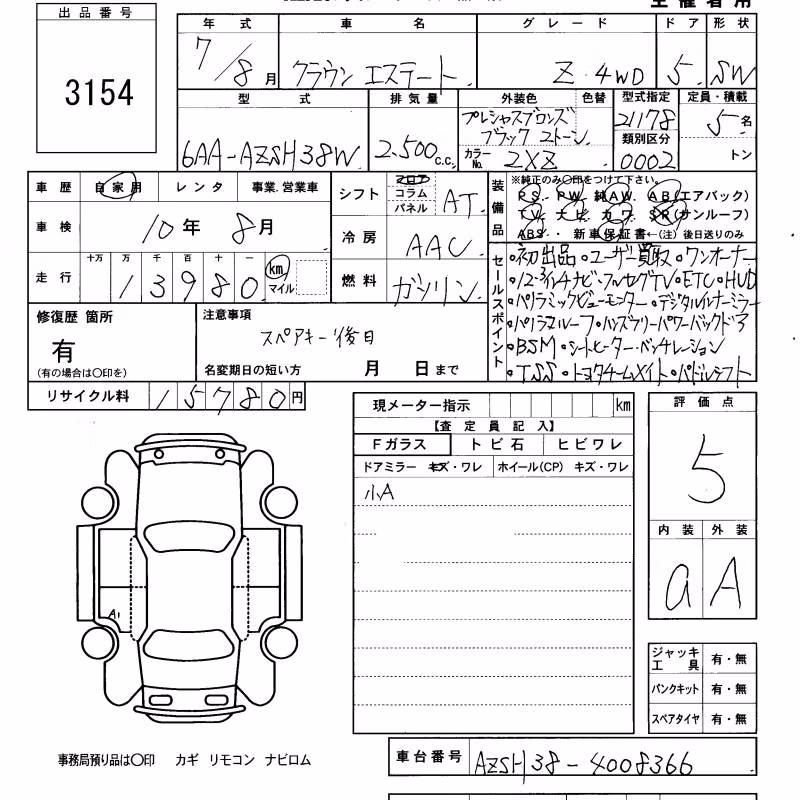 出品番号
3154
年式 車名 グレード ドア 形状
7/8月 クラウン エステート Z・4WD 5 SW
型式 排気量 外装色 色替 型式指定 定員・積載
6AA-AZSH38W 2.500c.c. プレシャスブロンズ 21178 5名
ブラック 2トーン 類別区分
カラーNo. 2XZ 0002 トン
車歴 自家用 レンタ 事業.営業車
車検 10年 8月
走行 十万 万 千 百 十 一
13980 km
マイル
シフト フロア コラム パネル AT
冷房 AAC
燃料 ガソリン
装備品
※純正のみ〇印をつけて下さい。
PS. PW. 純AW. AB(エアバック)
TV ナビ カワ SR(サンルーフ)
ABS. 新車保証書←(注)後日送りのみ
セールスポイント
・初出品・ユーザー買取・ワンオーナー
・12.3インチナビ・フルセグTV・ETC・HUD
・パノラミックビューモニター・デジタルインナーミラー
・パノラマルーフ・ハンズフリーパワーバックドア
・BSM・シートヒーター・ベンチレーション
・TSS・トヨタチームメイト・パドルシフト
修復歴 箇所
有
(有の場合は〇印を)
注意事項
スペアキー後日
名変期日の短い方 月 日まで
リサイクル料 15780円
現メーター指示 km
【査定員記入】
Fガラス トビ石 ヒビワレ
ドアミラー キズ・ワレ ホイール(CP) キズ・ワレ
小A
評価点
5
内装 外装
a A
A1
ジャッキ工具 有・無
パンクキット 有・無
スペアタイヤ 有・無
事務局預り品は〇印 カギ リモコン ナビロム
車台番号 AZSH38-4008366